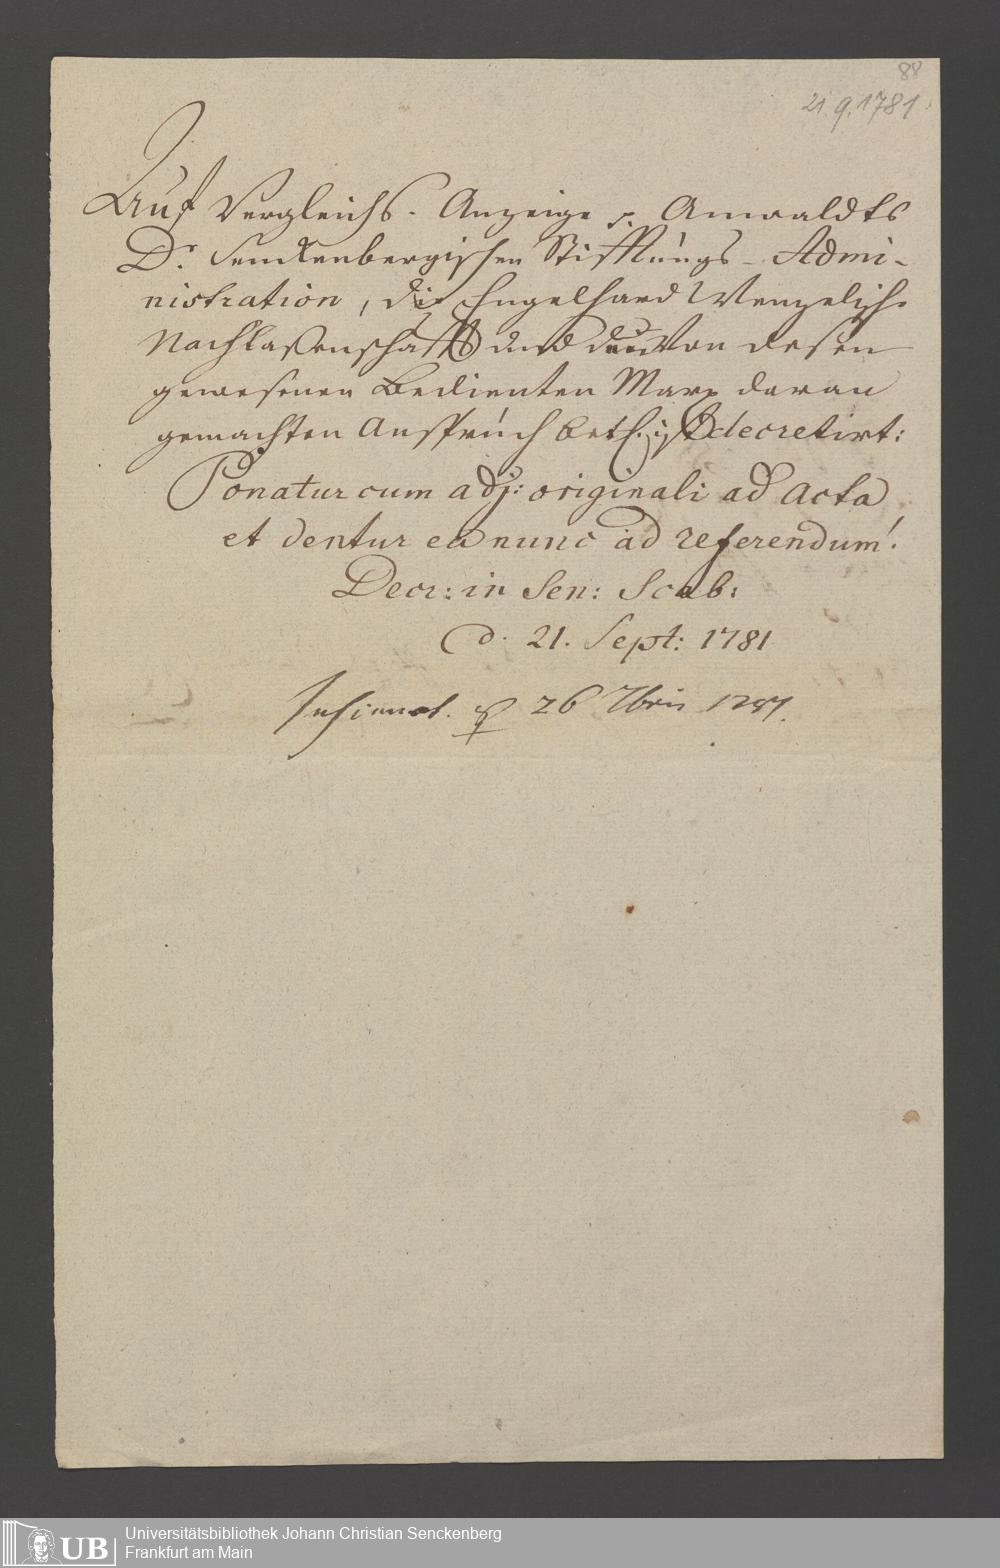 88
21.9.1781.
Auf Vergleichs-Anzeige p. Anwaldts
Dr. Senckenbergischen Stifftungs-Admi-
nistration, die Engelhard Wenzelische
Nachlaßenschafft und den von deßen
gewesenen Bedienten Marx daran
gemachten Anspruch betr. ist decretirt:
Ponatur cum adj: originali ad Acta
et dentur ea nunc ad referendum.
Decr: in Sen: Scab:
d. 21. Sept: 1781
26 7bris 1781.
UB
Universitätsbibliothek Johann Christian Senckenberg
Frankfurt am Main